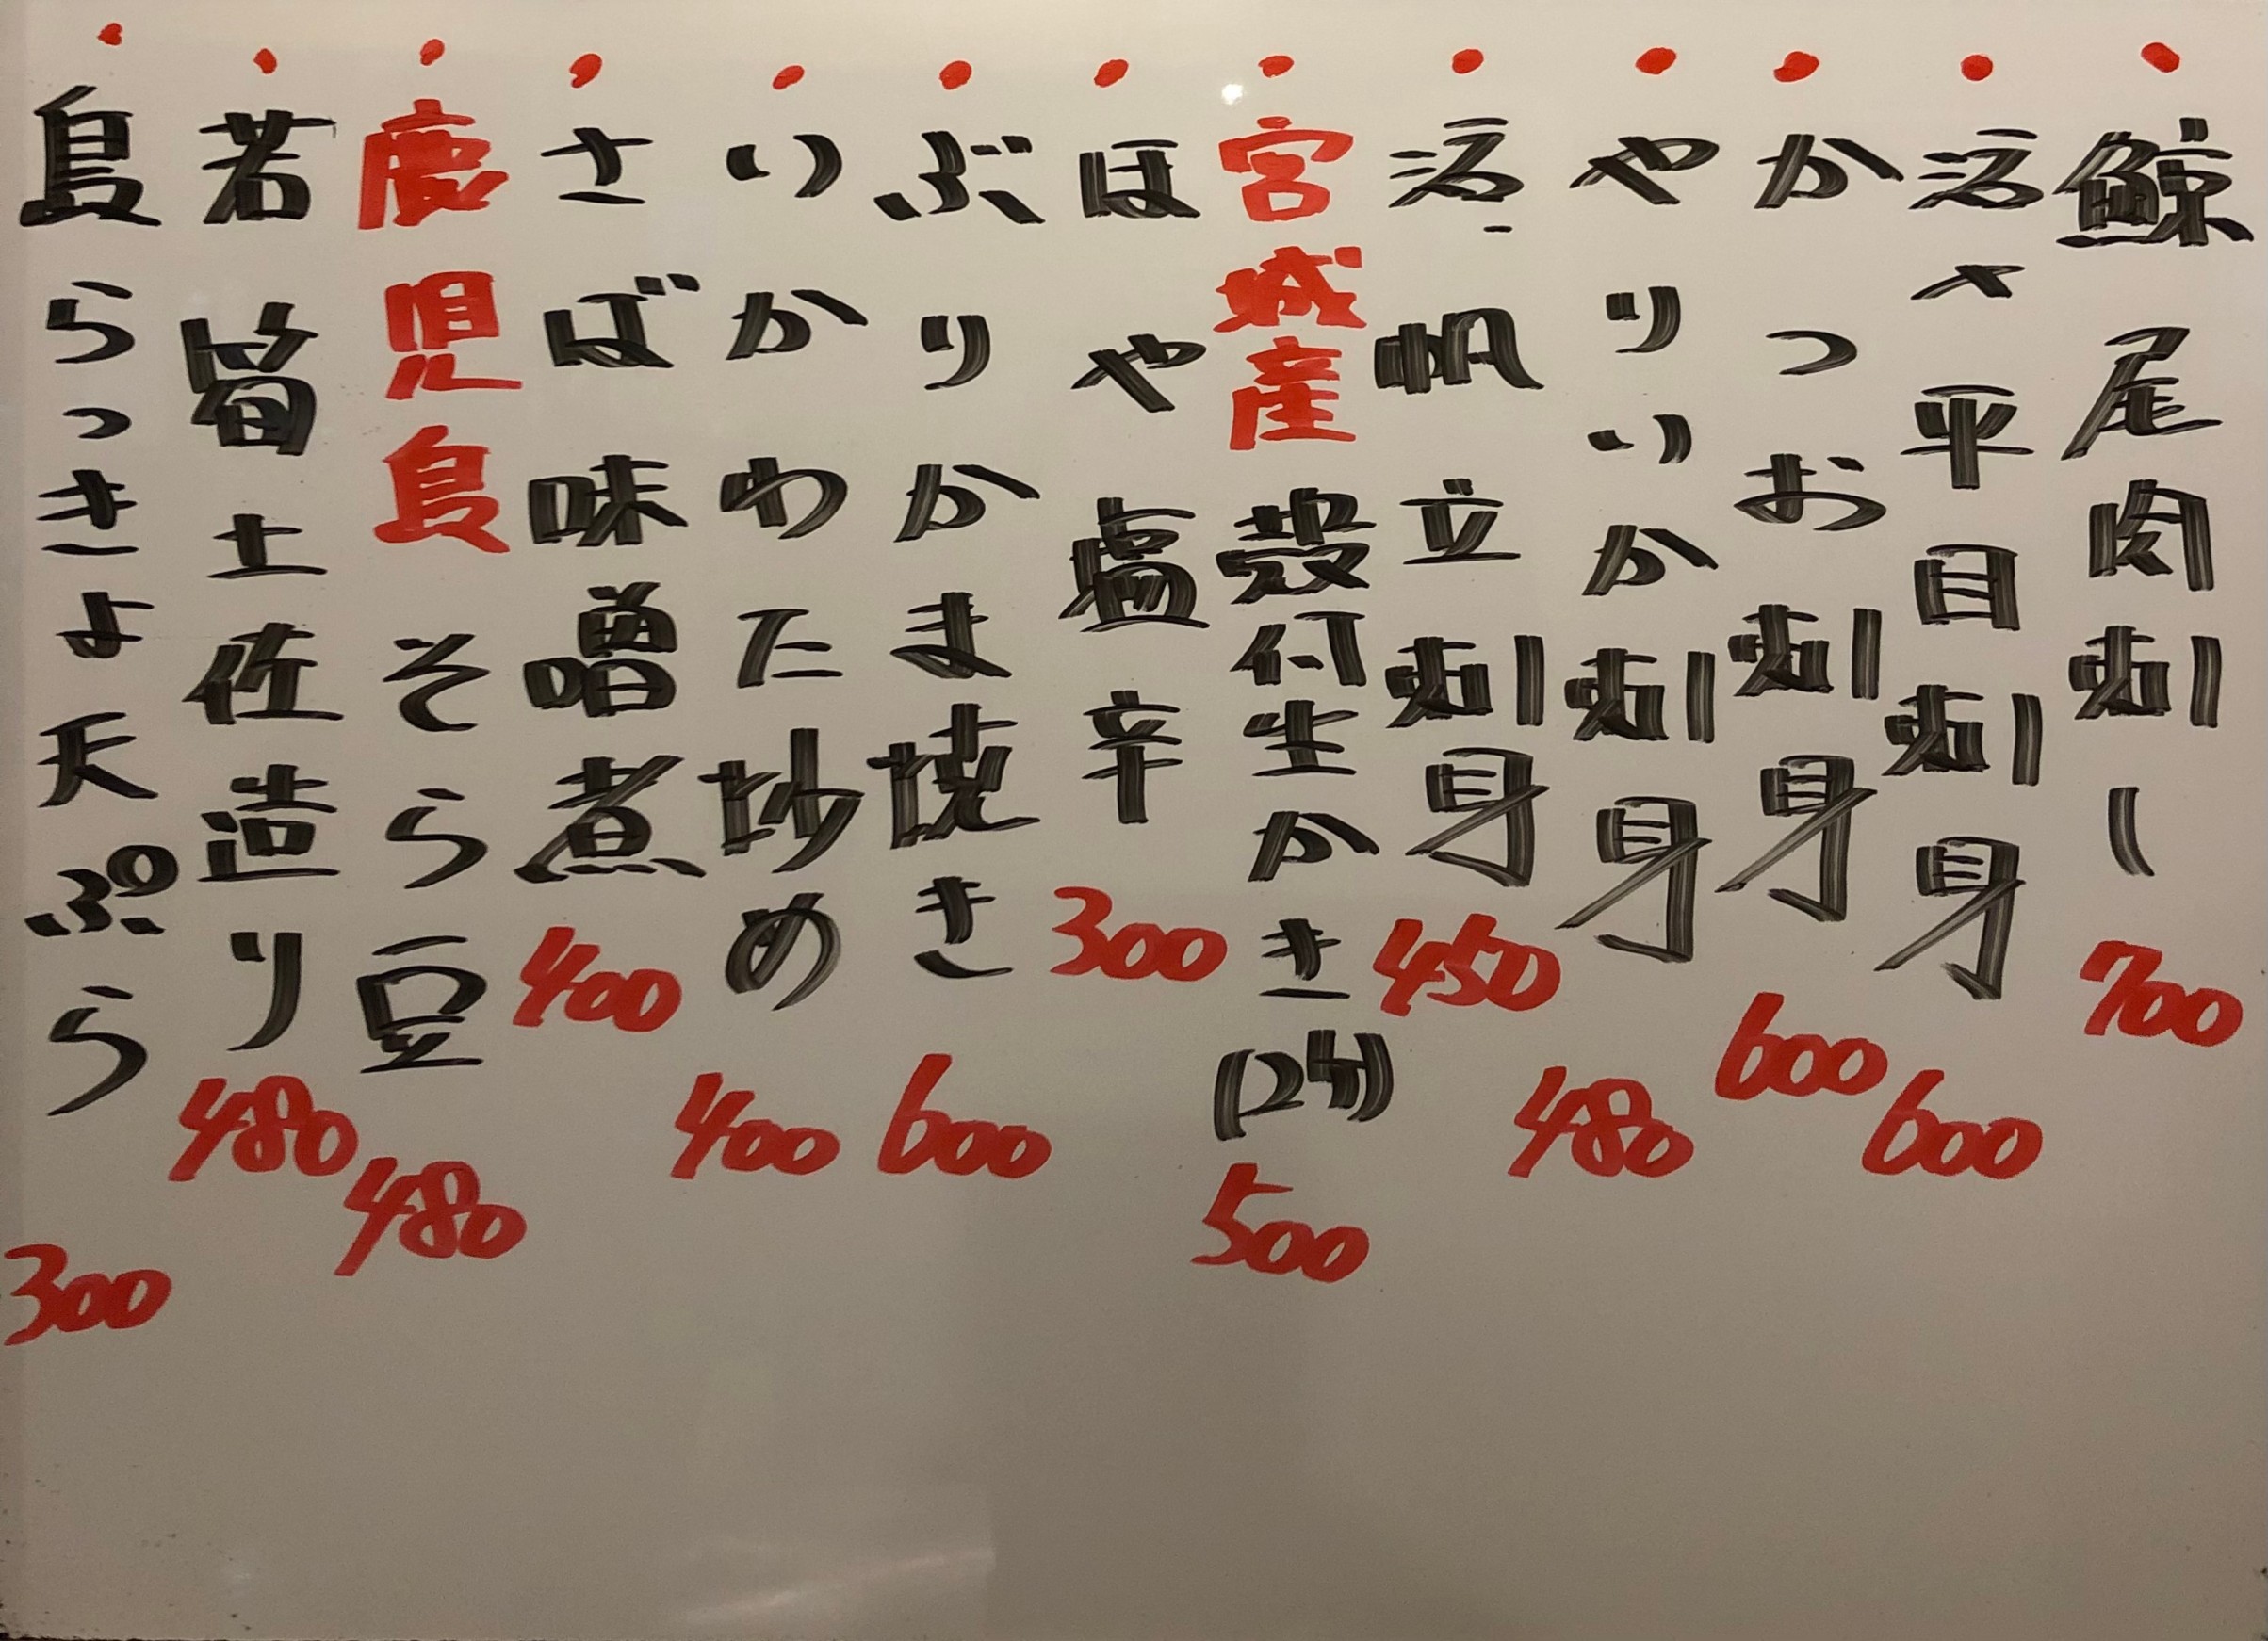 ・鯨尾肉刺し 700
・活〆平目刺身 600
・かつお刺身 600
・やりいか刺身 480
・活帆立刺身 450
・宮城産殻付生かき(2ヶ) 500
・ほや塩辛 300
・ぶりかま焼き 600
・いかわた炒め 400
・さば味噌煮 400
・鹿児島そら豆 480
・若筍土佐造り 480
・島らっきょ天ぷら 300